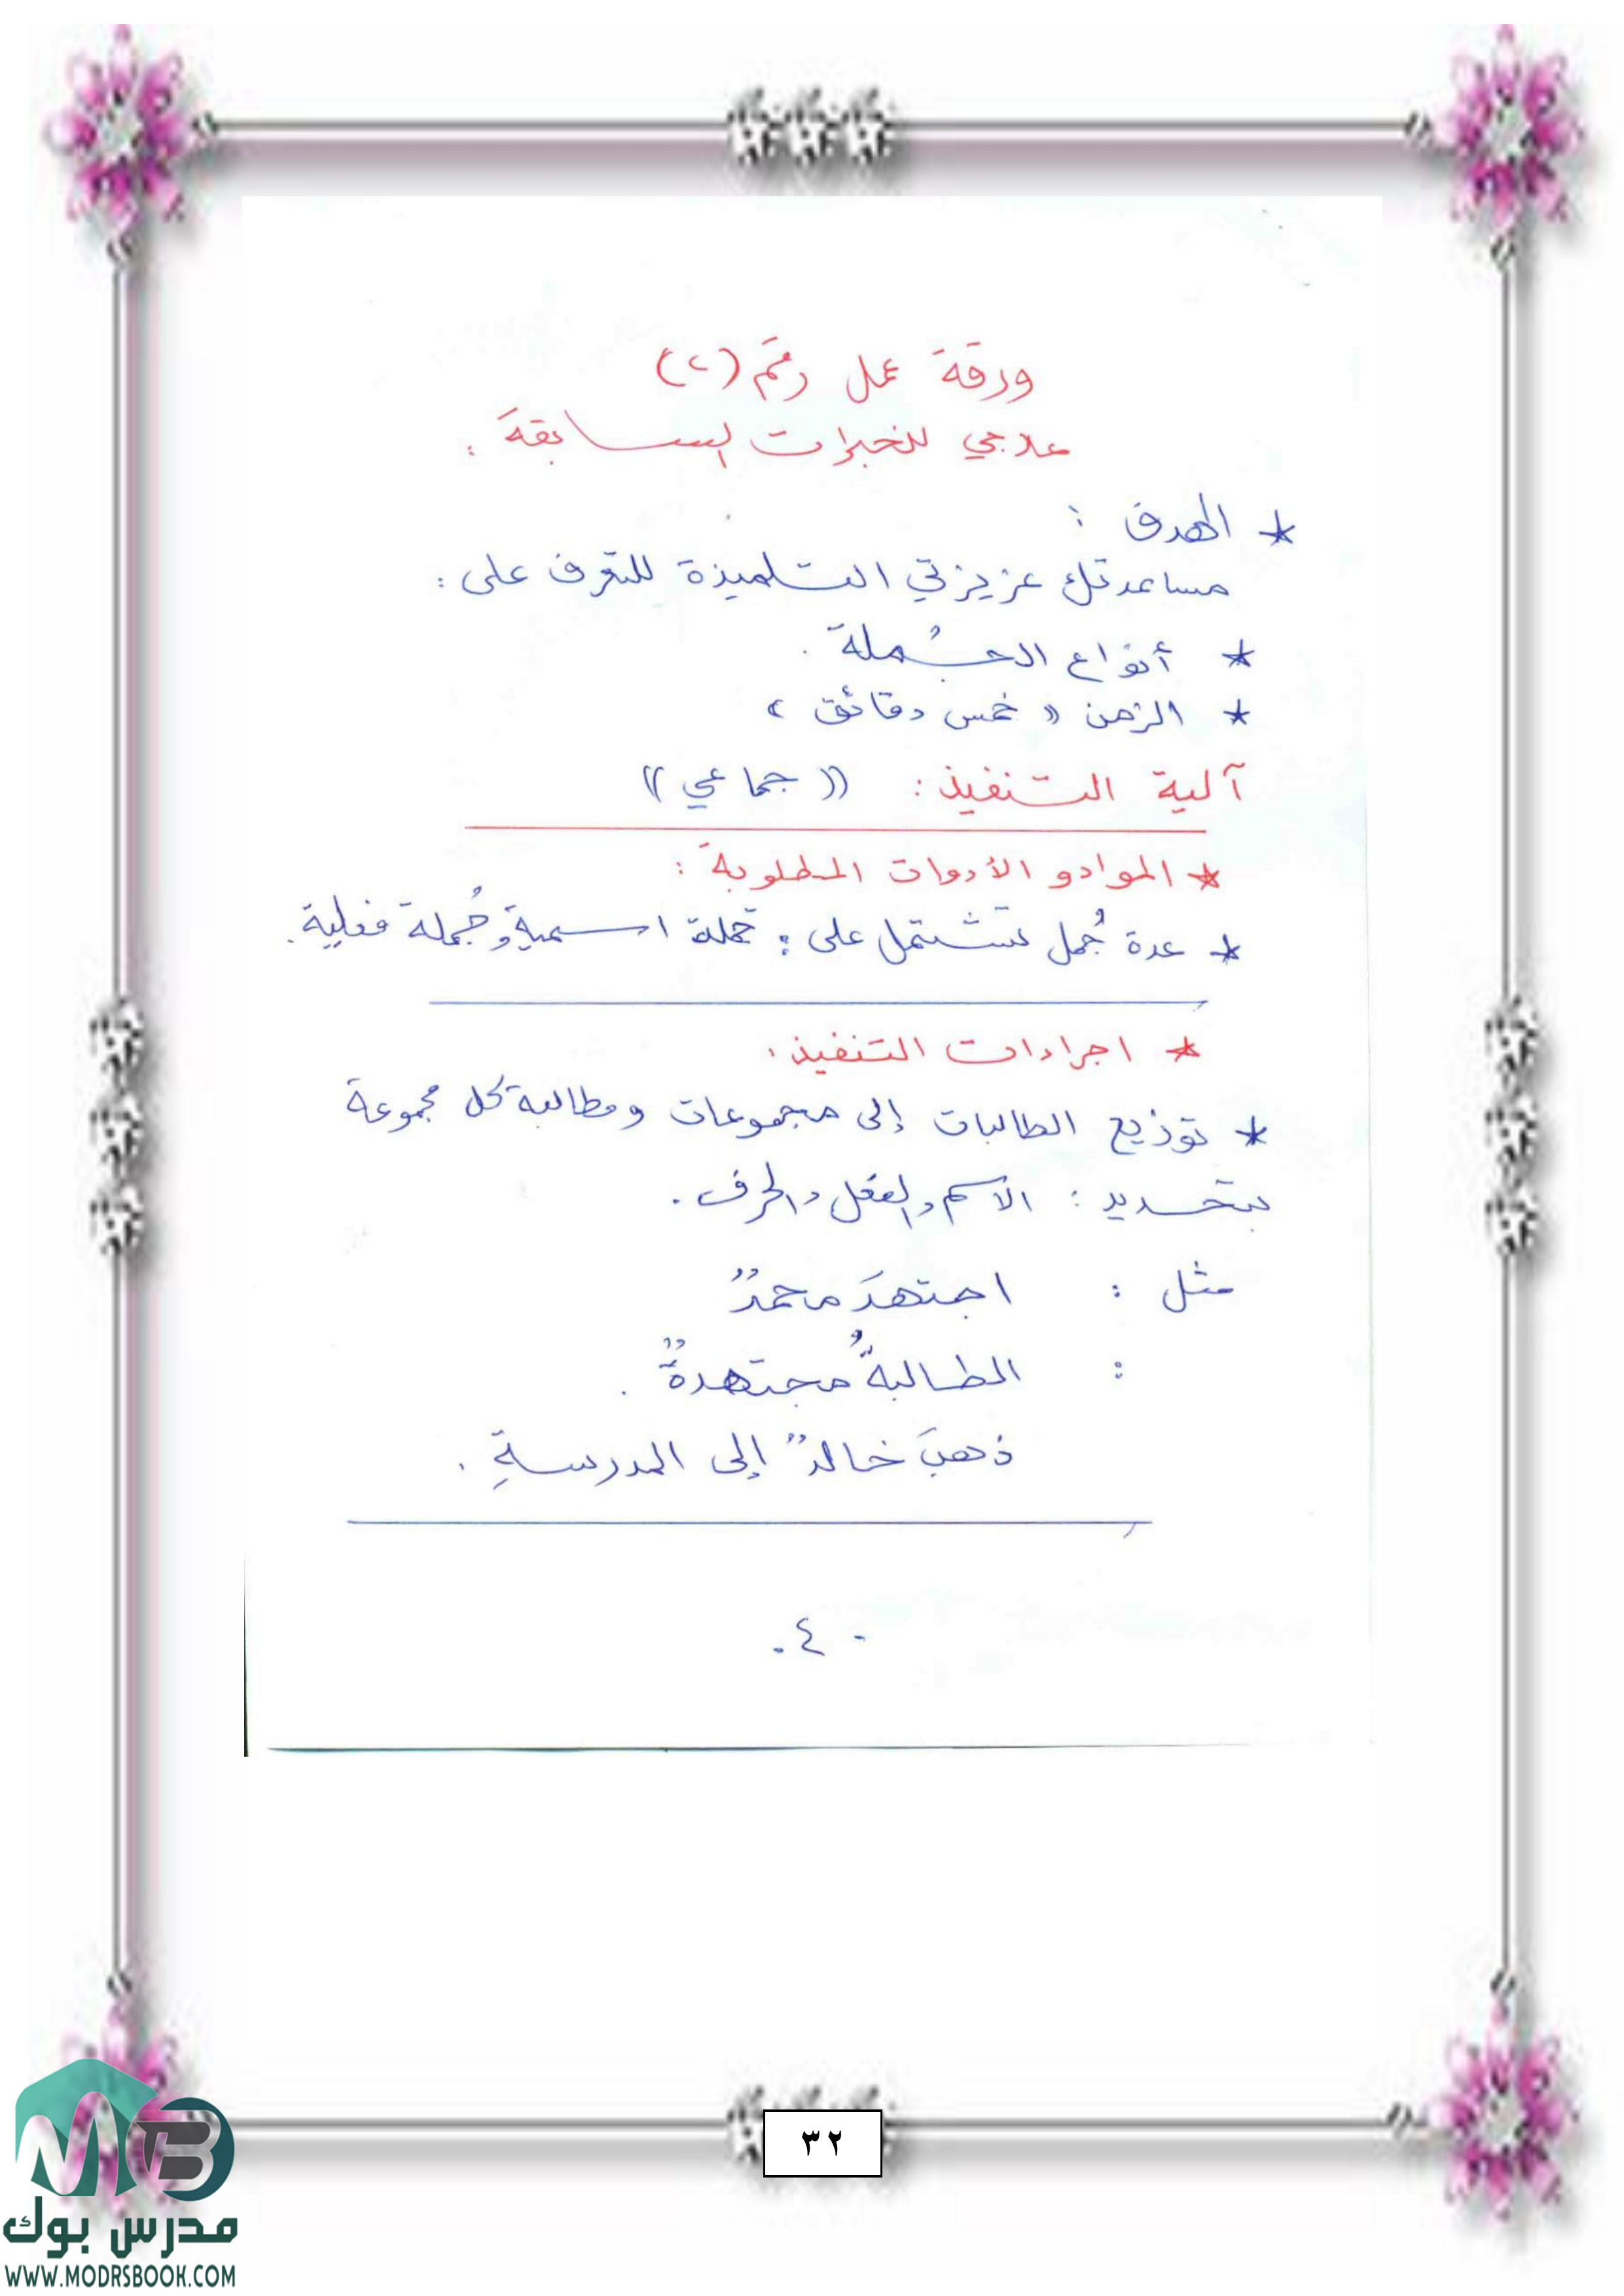 ورقة عمل رقم (٢)
علاجي للخبرات السابقة :
* الهدف :
مساعدتك عزيزتي التلميذة للتعرف على :
* أنواع الجُملة .
* الزمن « خمس دقائق »
آلية التنفيذ : (( جماعي ))
* المواد و الأدوات المطلوبة :
* عدة جُمل تشتمل على : جملة اسمية وجُملة فعلية .
* اجراءات التنفيذ :
* توزيع الطالبات إلى مجموعات ومطالبة كل مجموعة
بتحديد : الاسم والفعل والحرف .
مثل : اجتهدَ محمدٌ
: الطالبةُ مجتهدةٌ .
ذهبَ خالدٌ إلى المدرسةِ .
- ٤ -
٣٢
مدرس بوك
WWW.MODRSBOOK.COM